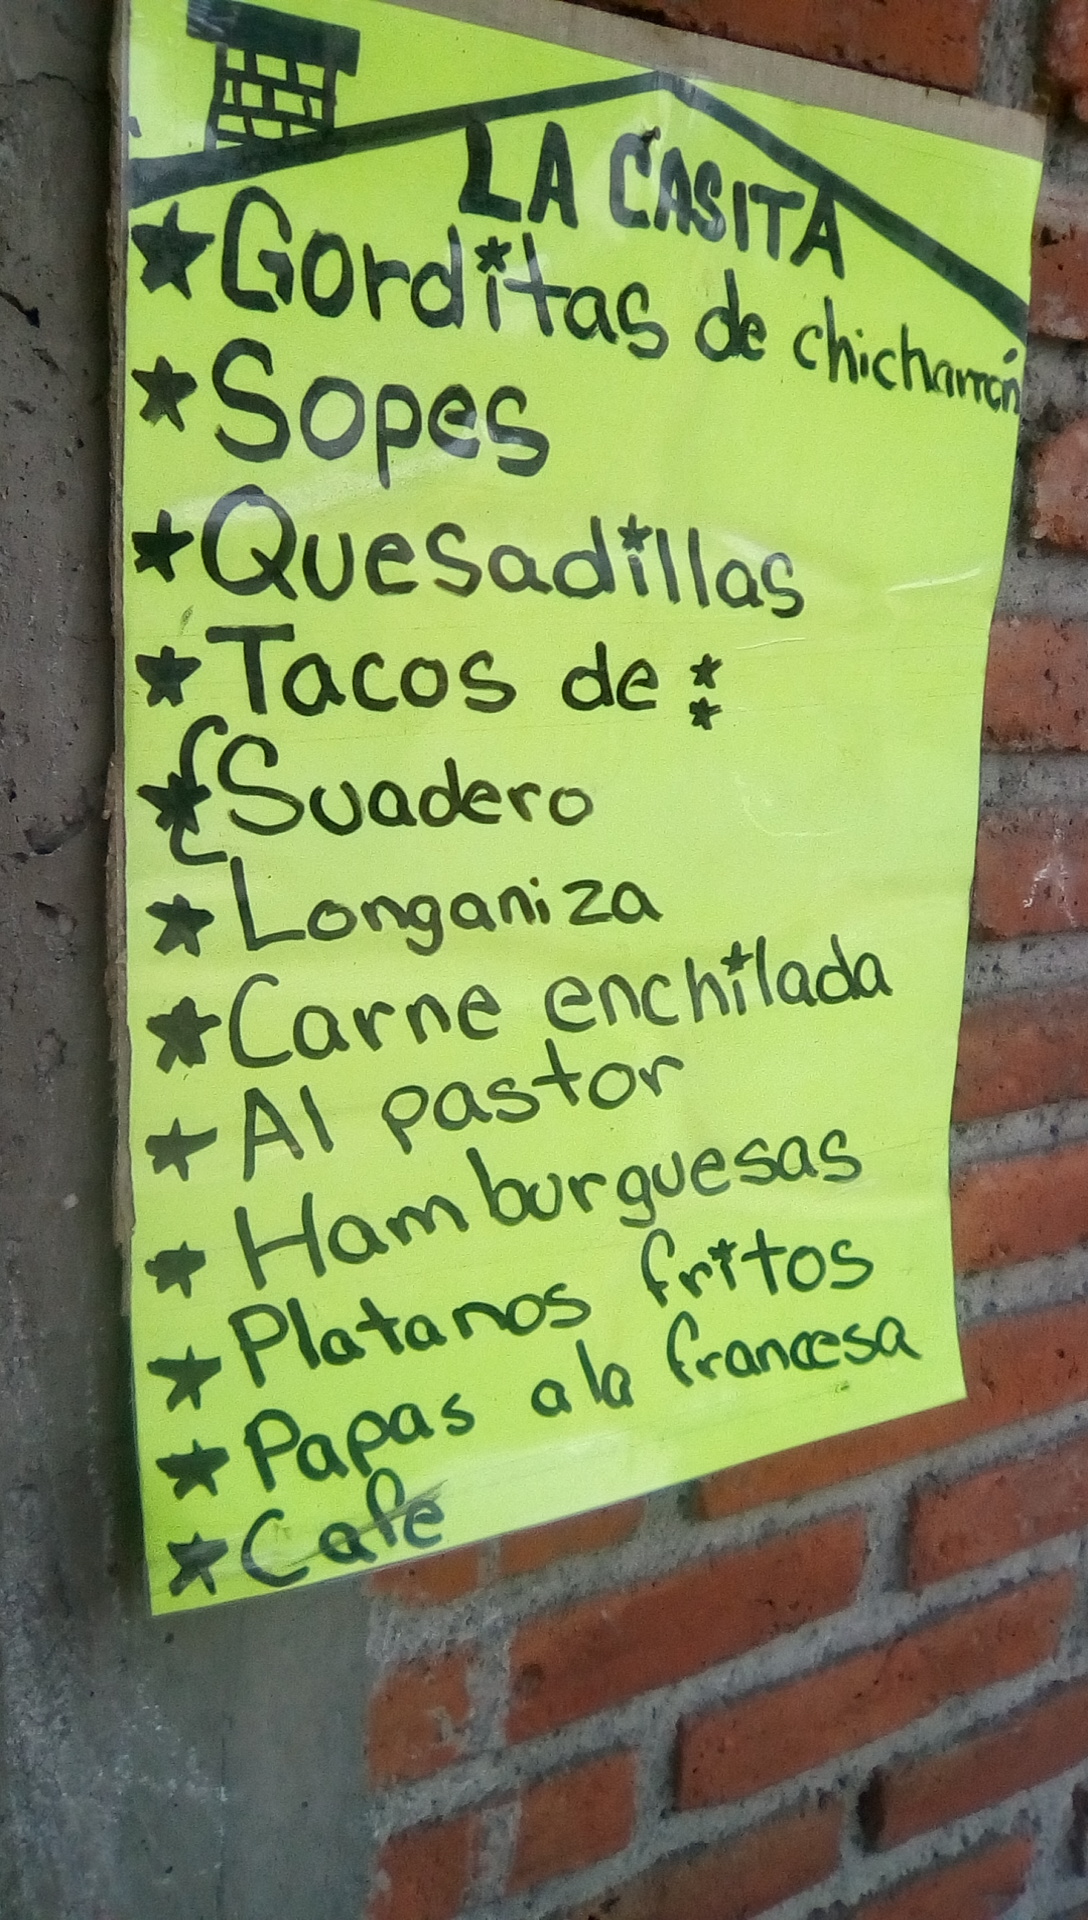 LA CASITA
Gorditas de chicharrón
Sopes
Quesadillas
Tacos de :
Suadero
Longaniza
Carne enchilada
Al pastor
Hamburguesas
Platanos fritos
Papas a la francesa
Cafe